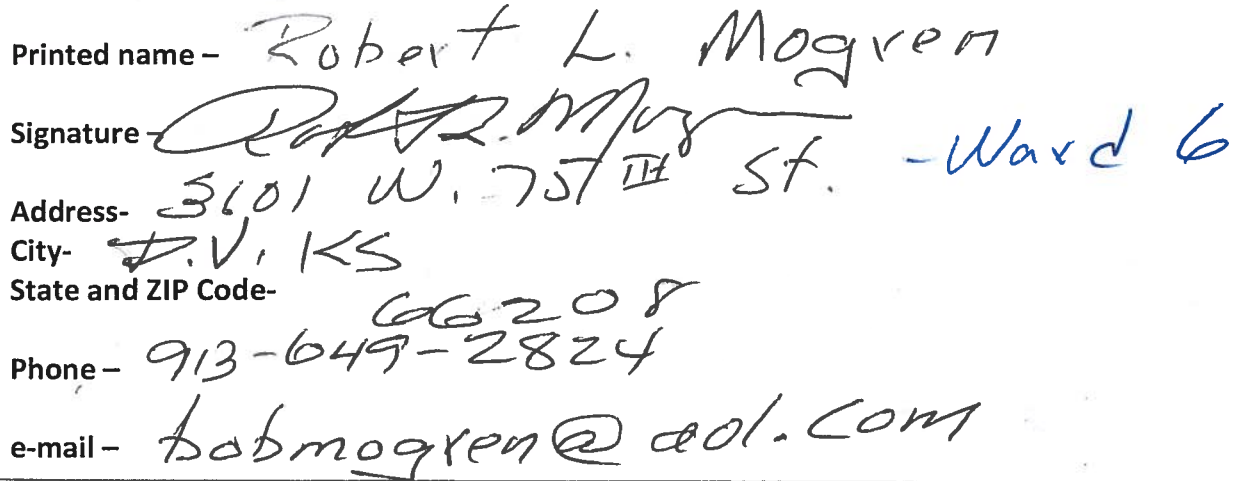 Printed name – Robert L. Mogren
Signature –
Address- 3601 W. 75 St. -Ward 6
City- P.V. KS
State and ZIP Code- 66208
Phone – 913-649-2824
e-mail – bobmogren@aol.com